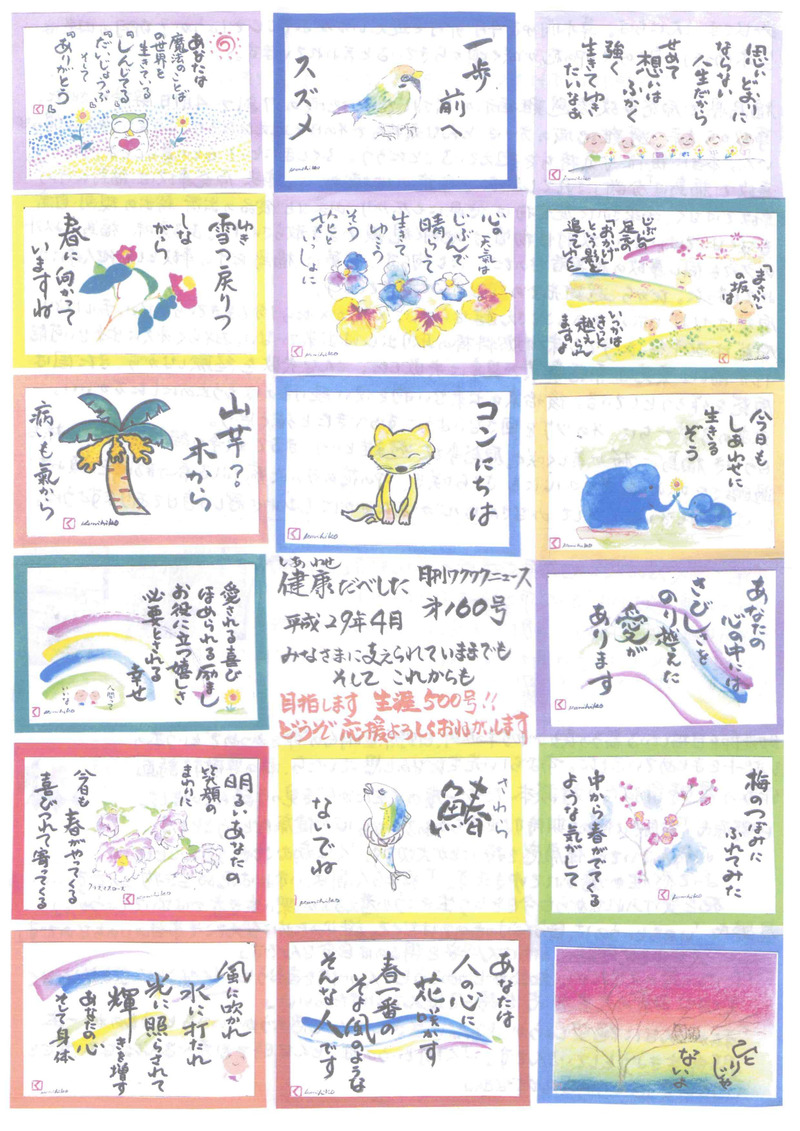 思いどおりに
ならない
人生だから
せめて
想いは
ふかく
強く
生きてゆき
たいなぁ
一歩
前へ
スズメ
Kunihiko
あなたは
魔法のことば
の世界を
生きている
『しんじてる』
『だいじょうぶ』
そして
『ありがとう』
「まさか」
の坂は
いつかは
きっと
越えられ
ますよ
じぶんの
足元の
「おかげ」
という影を
追ってゆくと
Kunihiko
心の
天気は
じぶんで
晴らして
生きて
ゆこう
そう
花と
いっしょに
Kunihiko
雪戻りつ
ゆき
しな
がら
春に向かって
いますね
今日も
しあわせに
生きる
ぞう
Kunihiko
コンにちは
Kunihiko
山芋?
木から
病いも氣から
Kunihiko
あなたの
心の中には
さびしさを
のり越えた
愛が
あります
Kunihiko
しあわせ
健康だべした 月刊ワクワクニュース
平成29年4月 オ160号
みなさまに支えられていままでも
そして これからも
目指します 生涯500号!!
どうぞ応援よろしくおねがいします
愛される喜び
ほめられる励まし
お役に立つ嬉しさ
必要とされる
幸せ
人間って
いいな
Kunihiko
梅のつぼみに
ふれてみた
中から春がでてくる
ような気がして
Kunihiko
さわら
鰆
ないでね
Kunihiko
明るいあなたの
笑顔の
まわりに
今日も春がやってくる
喜びつれて寄ってくる
クリスマスローズ
Kunihiko
ひと
りじゃ
ないよ
あなたは
人の心に
花咲かす
春一番の
そよ風のような
そんな人です
Kunihiko
風に吹かれ
水に打たれ
光に照らされて
輝きを増す
あなたの心
そして身体
Kunihiko